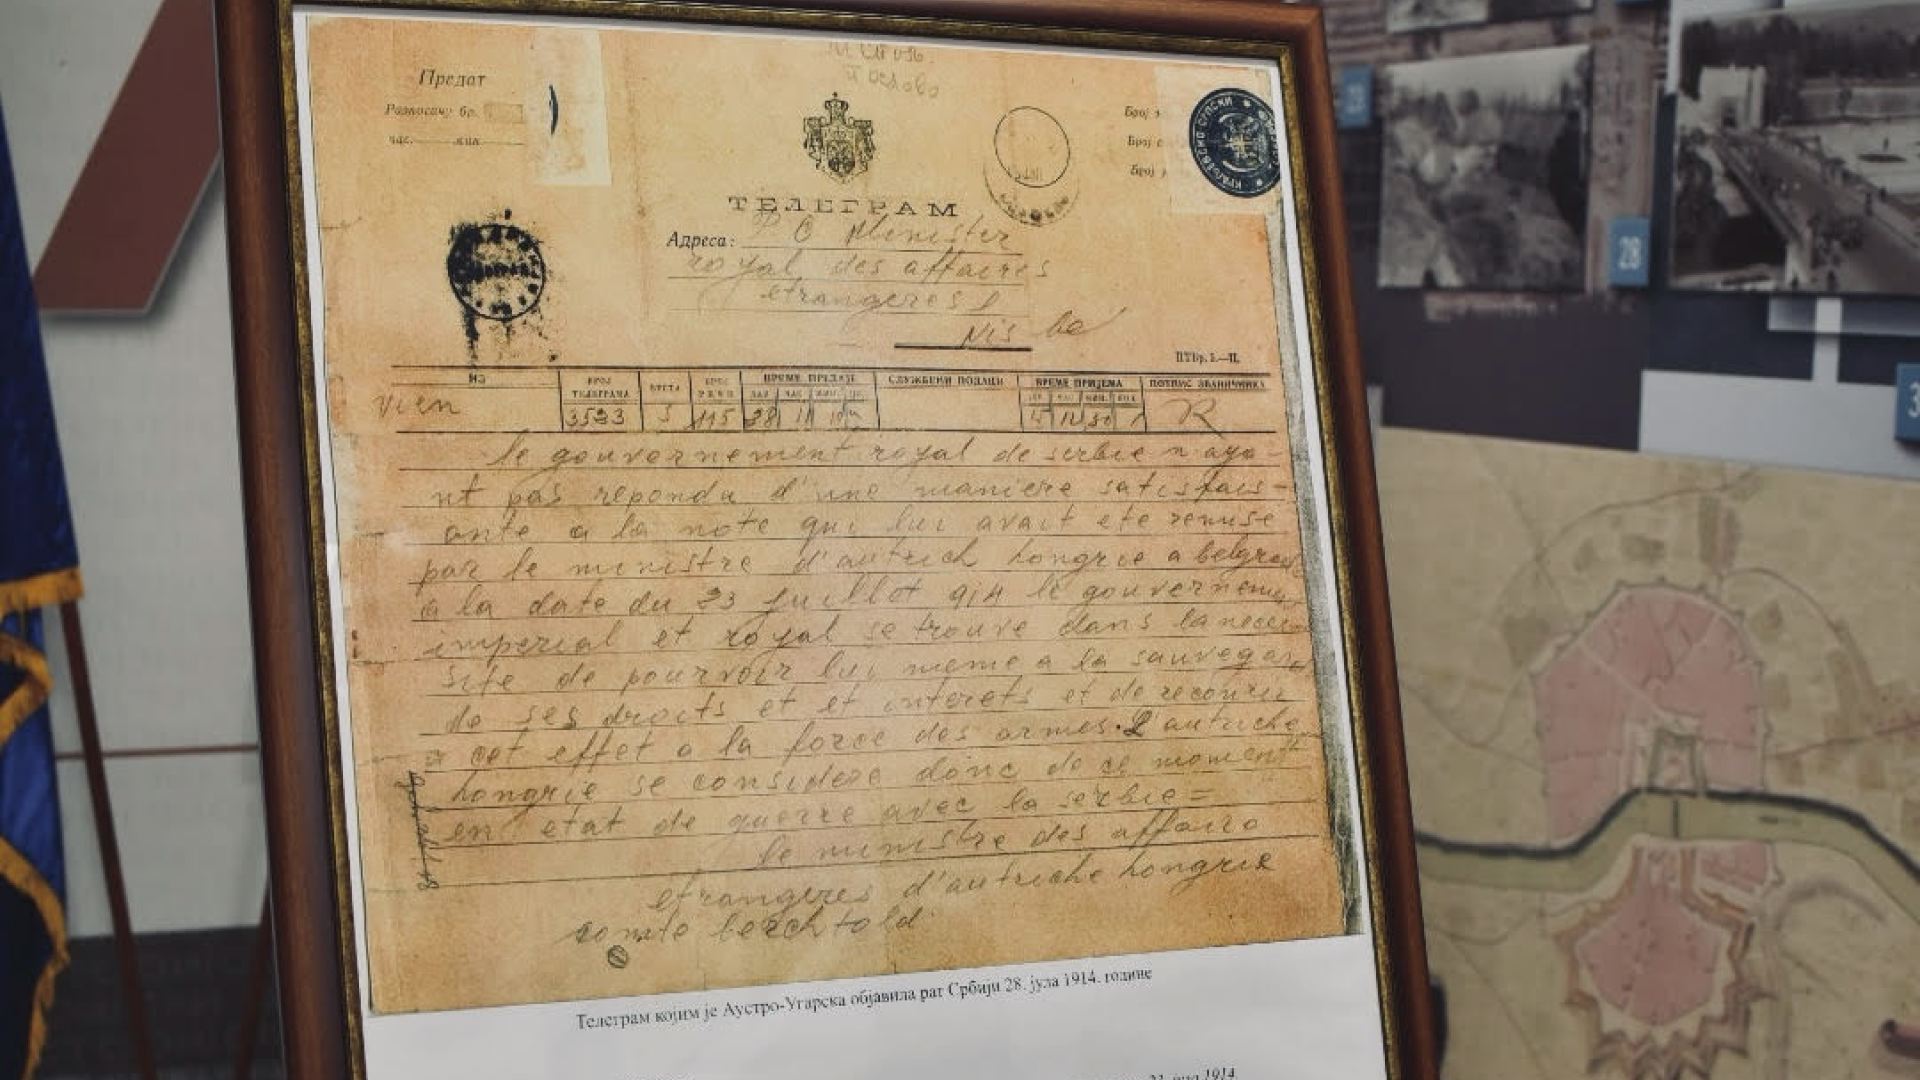 Предат
Разносачу бр.
час. кив
Број
Број
Број
ТЕЛЕГРАМ
Адреса: Minister
royal des affaires
etrangeres
Nis
ПТБр. 5.—II.
ИЗ
БРОЈ ТЕЛЕГРАМА
ВРСТА
БРОЈ РЕЧИ
ВРЕМЕ ПРЕДАЈЕ
СЛУЖБЕНИ ПОДАЦИ
ВРЕМЕ ПРИЈЕМА
ПОТПИС ЗВАНИЧНИКА
ЧАС МИН.
ЧАС МИН.
Vien 3523 5 115 28 11 R
le gouvernement royal de serbie n aya-
nt pas reponda d'une maniere satisfais-
ante a la note qui lui avait ete remise
par le ministre d'autrich hongrie a belgrad
a la date du 23 juillot 914 le gouverneme
imperial et royal se trouve dans la neces
site de pourvoir lui meme a la sauvegar
de ses droits et et interets et de recouriu
a cet effet a la force des armes. L autriche
hongrie se considere donc de ce moment
en etat de guerre avec la serbie =
le ministre des affairo
etrangeres d'autriche hongrie
comte berchtold
Телеграм којим је Аустро-Угарска објавила рат Србији 28. јула 1914. године
1914.
28